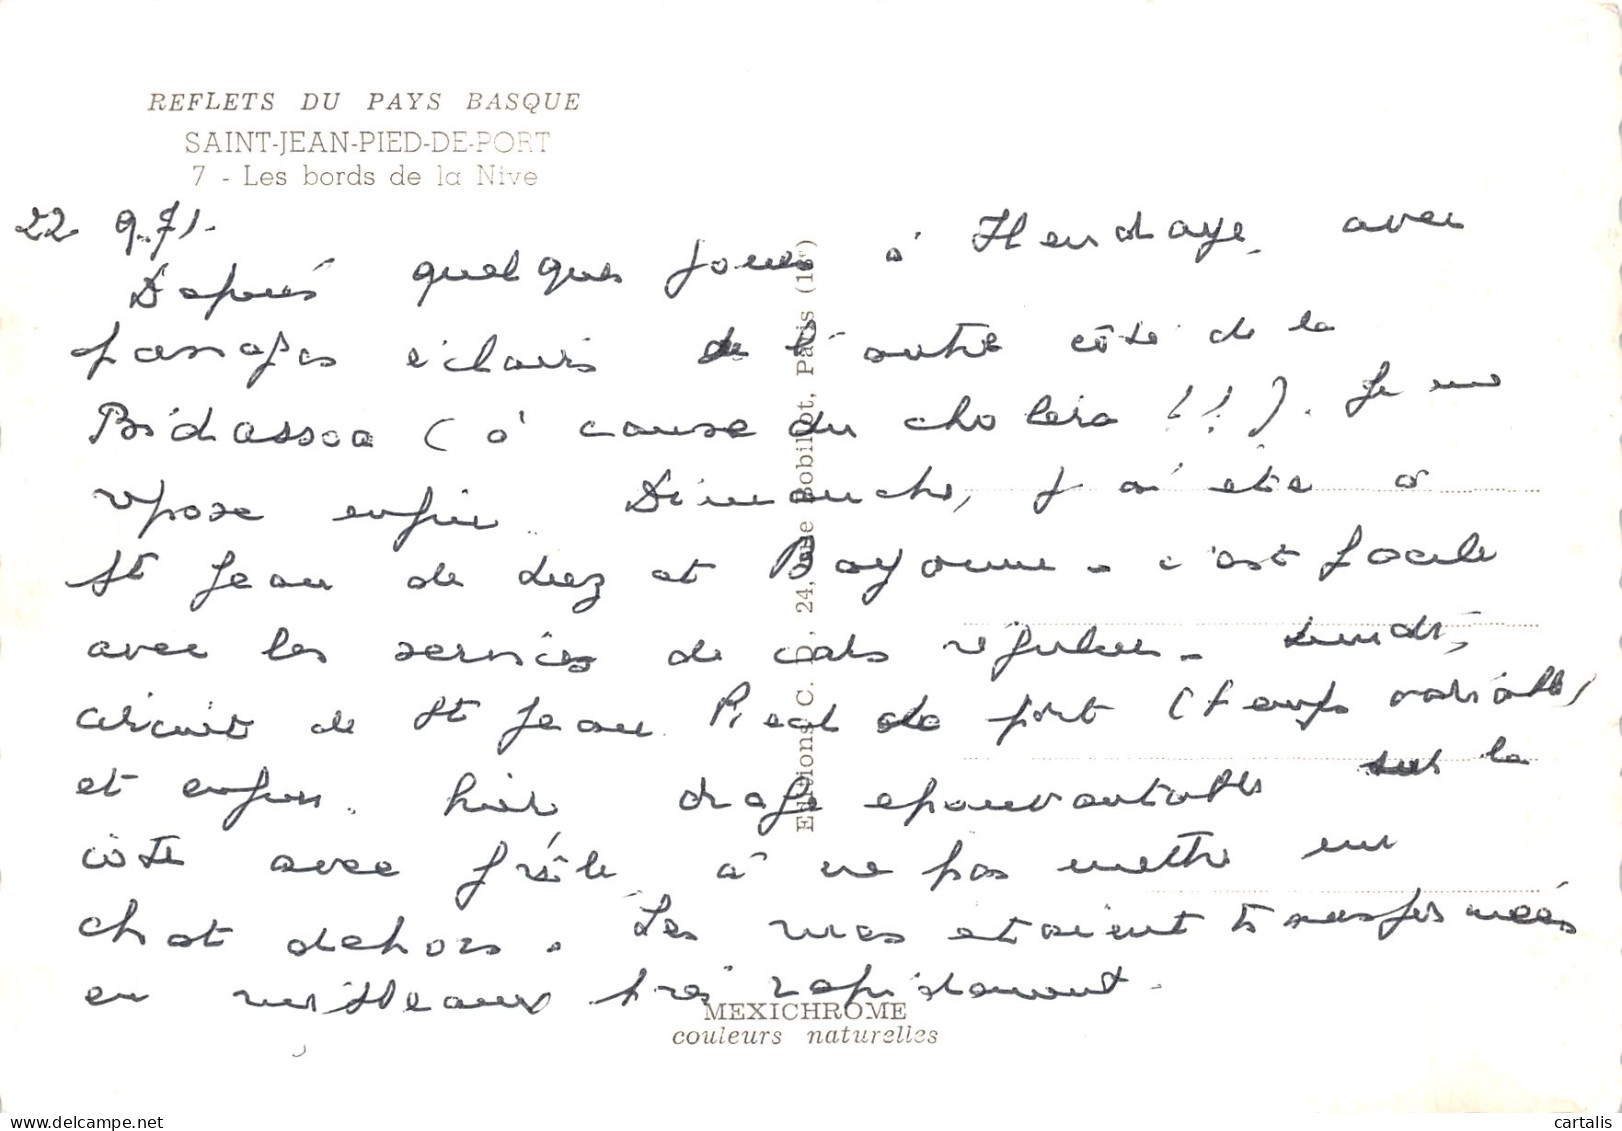 REFLETS DU PAYS BASQUE
SAINT-JEAN-PIED-DE-PORT
7 - Les bords de la Nive
22 9.71.
Depuis quelques jours à Hendaye, avec
passages éclairs de l'autre côté de la
Bidassoa (à cause du choléra !!). Je me
repose enfin. Dimanche, j'ai été à
St Jean de Luz et Bayonne - c'est facile
avec les services de cars réguliers - Lundi,
circuit de St Jean Pied de port (temps variable)
et enfin, hier orage épouvantable sur la
côte avec grêle, à ne pas mettre un
chat dehors. Les rues étaient transformées
en ruisseaux très rapidement.
Editions C. , 24, rue Bobillot, Paris
MEXICHROME
couleurs naturelles
cartalis